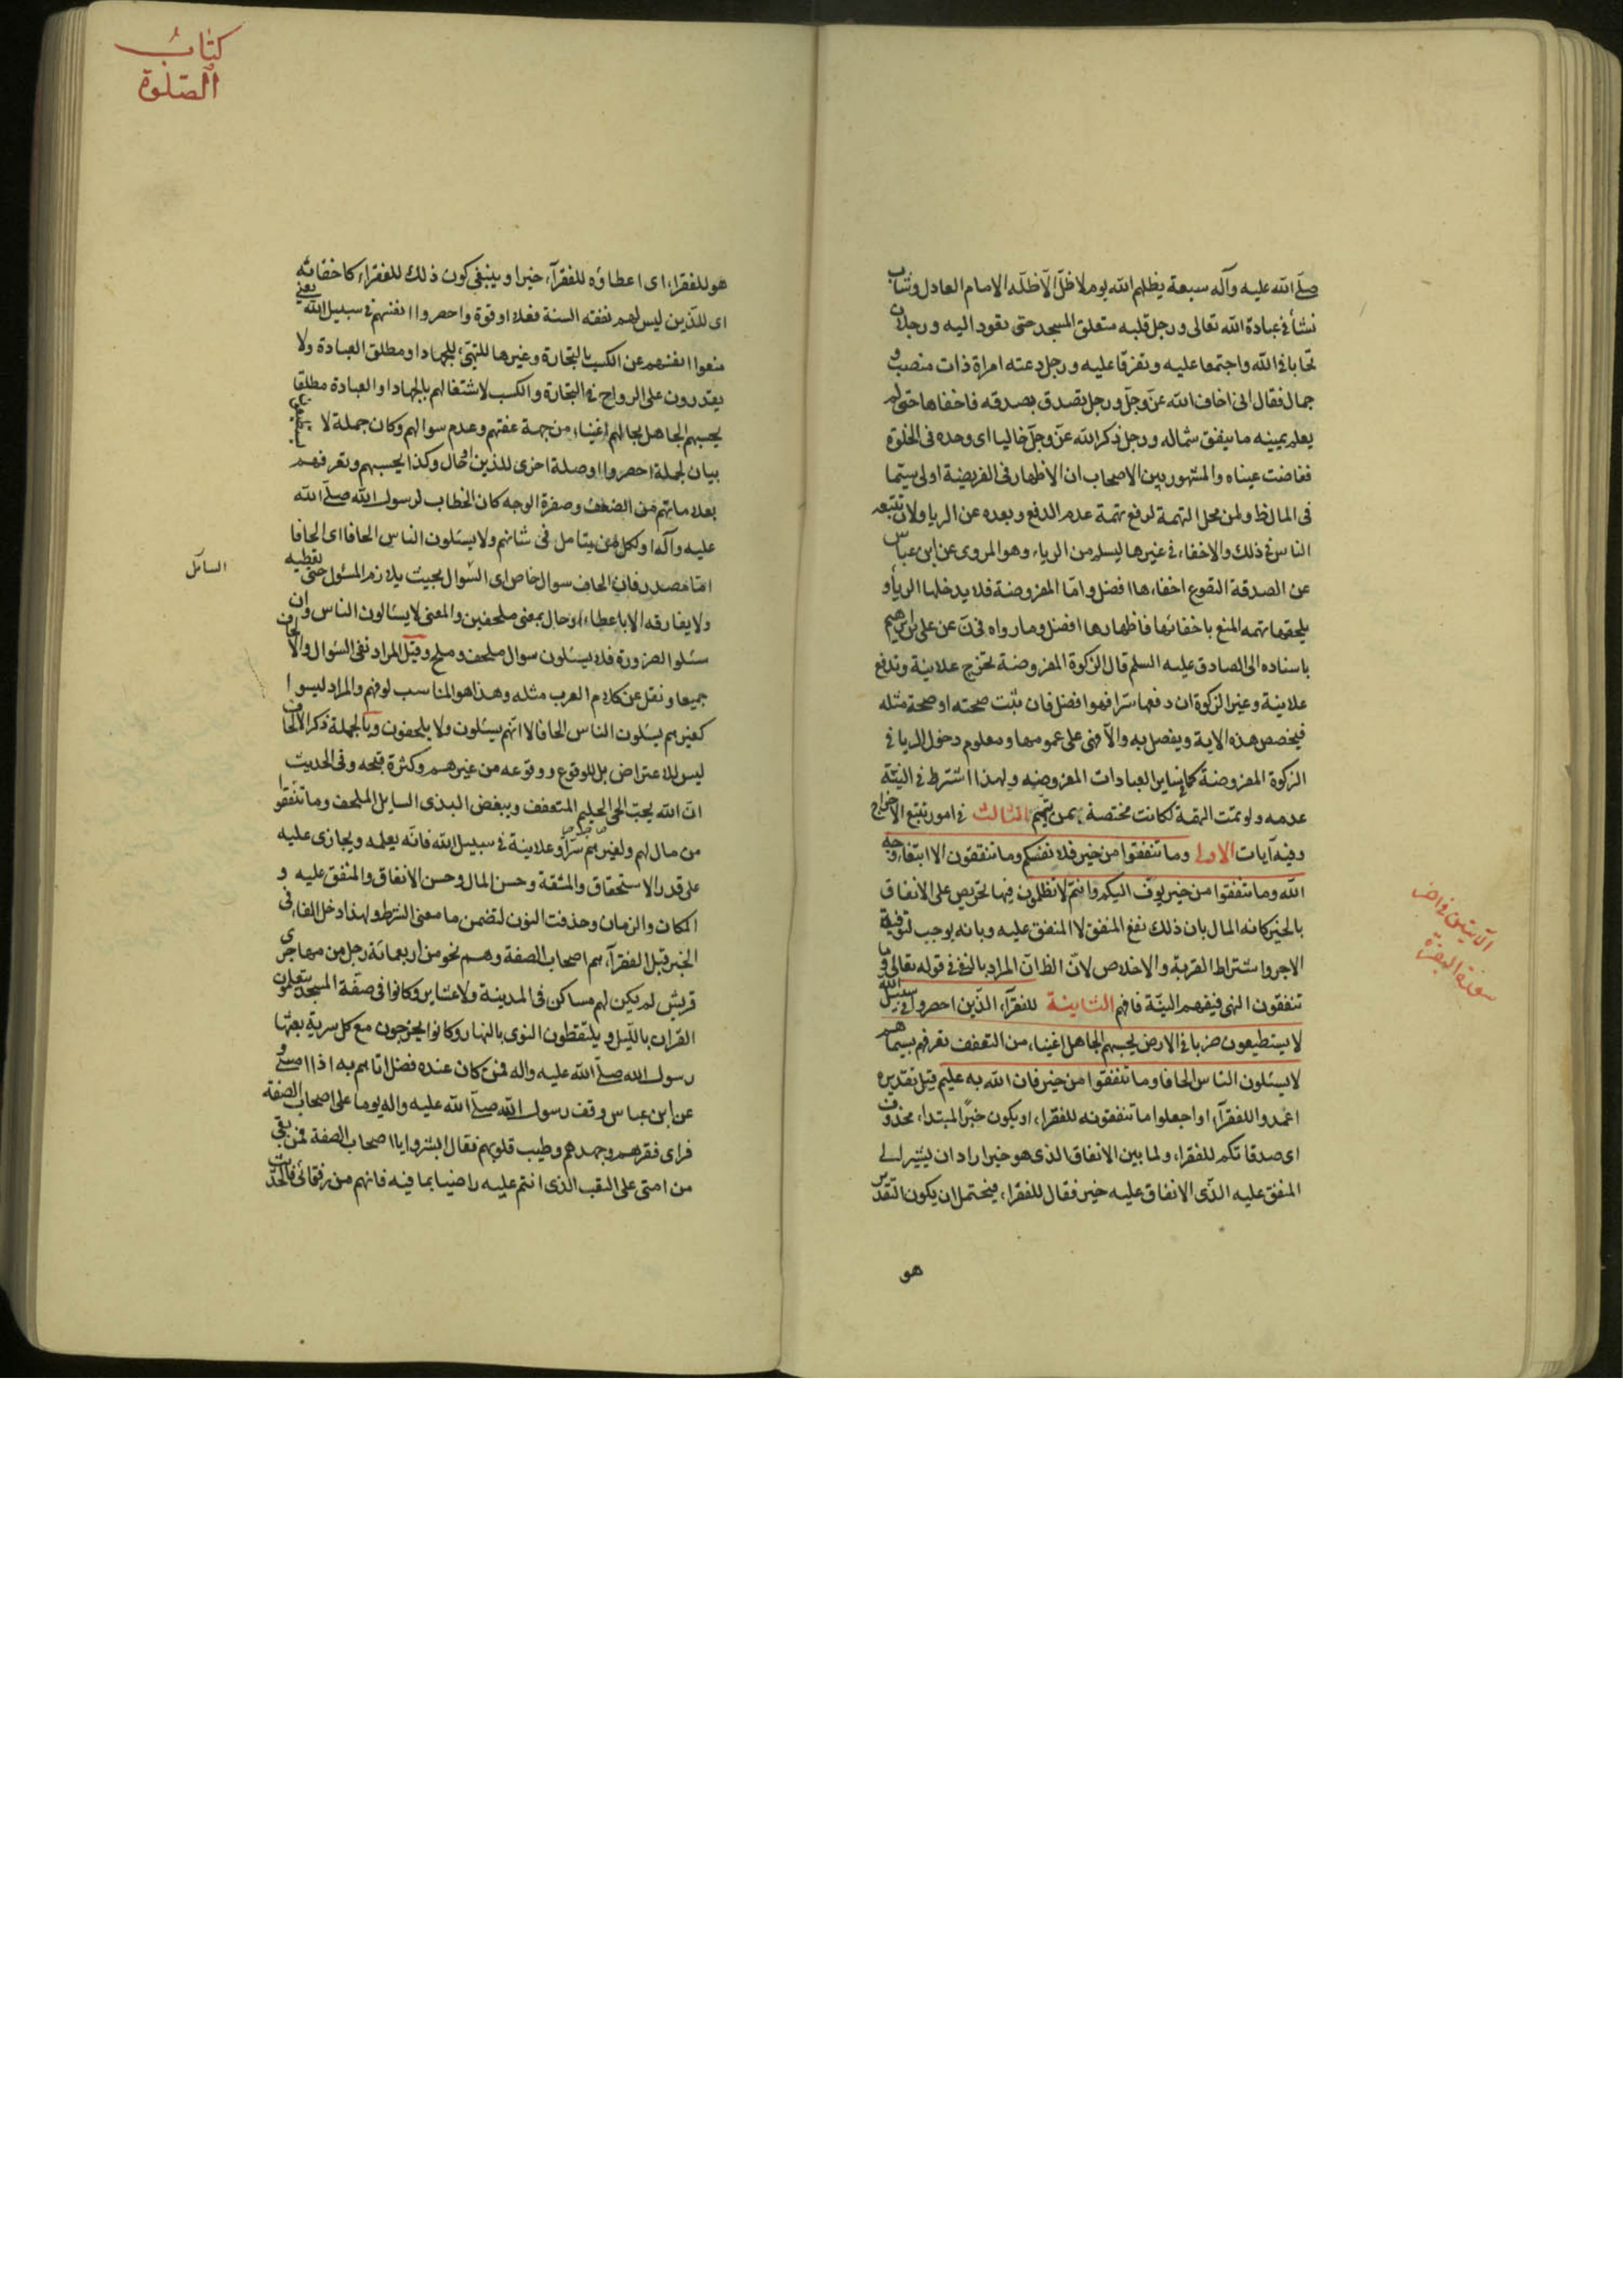 صلّى الله عليه وآله سبعة يظلهم الله يوم لا ظلّ الّا ظلّه الامام العادل وشاب
نشأ في عبادة الله تعالى ورجل قلبه متعلق المسجد حتى يعود اليه ورجلان
تحابا في الله واجتمعا عليه وتفرقا عليه ورجل دعته امراة ذات منصب و
جمال فقال انى اخاف الله عزّ وجلّ ورجل تصدق بصدقه فاخفاها حتى لم
يعلم يمينه ما ينفق شماله ورجل ذكر الله عزّ وجلّ خاليا اى وحده فى الخلوة
ففاضت عيناه والمشهور بين الاصحاب ان الاظهار فى الفريضة اولى سيّما
فى المال الظ ولمن محل التهمة لدفع تهمة عدم الدفع وبعده عن الريا ولان يتبعه
الناس في ذلك والاخفاء في غيرها ليسلم من الرياء وهو المروى عن ابن عباس
عن الصدقة التطوع اخفاءها افضل وامّا المفروضة فلا يدخلها الريا و
يلحقها تهمه المنع باخفائها فاظهارها افضل وما رواه في ن عن على بن ابراهيم
باسناده الى الصادق عليه السلم قال الزكوة المفروضة تخرج علانية وتدفع
علانية وغير الزكوة ان دفعها سرّا فهو افضل فان ثبت صحته او صحة مثله
فيخصص هذه الاية ويفصل به والّا فهى على عمومها ومعلوم دخول الريا في
الزكوة المفروضة كما في ساير العبادات المفروضه ولهذا اشترط في النيّة
عدمه ولو تمت التهمة لكانت مختصة بمن يتّهم الثالث في امور تتبع الاخراج
وفيه آيات الاولى وما تنفقوا من خير فلانفسكم وما تنفقون الا ابتغاء وجه
الله وما تنفقوا من خير يوفّ اليكم وانتم لا تظلمون فيها تحريص على الانفاق
بالخير كانه المال بان ذلك نفع المنفق لا المنفق عليه وبانه يوجب توفية
الاجر واشتراط القربة والاخلاص لانّ الظ انّ المراد بالنفى فى قوله تعالى وما
تنفقون النهى فيفهم النيّة فافهم الثانية للفقرآء الّذين احصروا في سبيل الله
لا يستطيعون ضربا في الارض يحسبهم الجاهل اغنياء من التعفف تعرفهم بسيماهم
لا يسئلون الناس الحافا وما تنفقوا من خير فان الله به عليم قيل تقديره
اعمدوا للفقرآء او اجعلوا ما تنفقونه للفقراء او يكون خبرًا لمبتداء محذوف
اى صدقاتكم للفقراء ولما بين الانفاق الذى هو خير اراد ان يشير الى
المنفق عليه الّذى الانفاق عليه خير فقال للفقراء فيحتمل ان يكون التقدير
هو
الآيتين في اخر
سورة البقرة
كتاب
الصلوة
هو للفقراء اى اعطاؤه للفقرآء خيرا وينبغى كون ذلك للفقراء كاخفائه
اى للّذين ليس لهم نفقه السنة فعلا او قوة واحصروا انفسهم في سبيل الله يعنى
منعوا انفسهم عن الكسب بالتجارة وغيرها للجهاد او مطلق العبادة ولا
يقدرون على الرواح في التجارة والكسب لاشتغالهم بالجهاد او العبادة مطلقا
يحسبهم الجاهل بحالهم اغنياء من جهة عفتهم وعدم سوالهم وكان جملة لا يستطيعون
بيان لجملة احصروا او صلة اخرى للذين او حال وكذا يحسبهم وتعرفهم
بعلاماتهم من الضعف وصفرة الوجه كان الخطاب لرسول الله صلّى الله
عليه وآله او لكل من يتامل فى شانهم ولا يسئلون الناس الحافا اى الحافا
امّا مصدر فان الحاف سوال خاص اى السّوال بحيث يلازم المسئول حتى يعطيه
ولا يفارقه الا باعطاء او حال بمعنى ملحفين والمعنى لا يسالون الناس وان
سئلوا الضرورة فلا يسئلون سوال ملحف وملح وقيل المراد نفى السّوال والالحاف
جميعا ونقل عن كلام العرب مثله وهذا هو المناسب لوفهم والمراد ليسوا
كغيرهم يسئلون الناس الحافا لا انّهم يسئلون ولا يلحفون وبالجملة ذكر الالحاف
ليس للاعتراض بل للوقوع ووقوعه من غيرهم وكثرة قبحه وفى الحديث
انّ الله يحبّ الحى الحليم المتعفف ويبغض البذى السايل الملحف وما تنفقوا
من مال لهم ولغيرهم سرّا وعلانية في سبيل الله فانّه يعلمه ويجازى عليه
على قدر الاستحقاق والمشقة وحسن المال وحسن الانفاق والمنفق عليه و
المكان والزمان وحذفت النون لتضمن ما معنى الشرط ولهذا دخل الفاء فى
الخبر قيل الفقرآء هم اصحاب الصفة وهم نحو من اربعمائة رجل من مهاجرى
قريش لم يكن لهم مساكن فى المدينة ولا عشاير وكانوا فى صفّة المسجد يتعلمون
القران بالليل ويلتقطون النوى بالنهار وكانوا يخرجون مع كل سرية بعثها
رسول الله صلّى الله عليه واله فمن كان عنده فضل اتاهم به اذا امسى و
عن ابن عباس وقف رسول الله صلّى الله عليه واله يوما على اصحاب الصفة
فراى فقرهم وجهدهم وطيب قلوبهم فقال ابشروا يا اصحاب الصفة فمن بقى
من امتى على النقب الذى انتم عليه راضيا بما فيه فانهم من رفقائى فالحدّيث
السائل